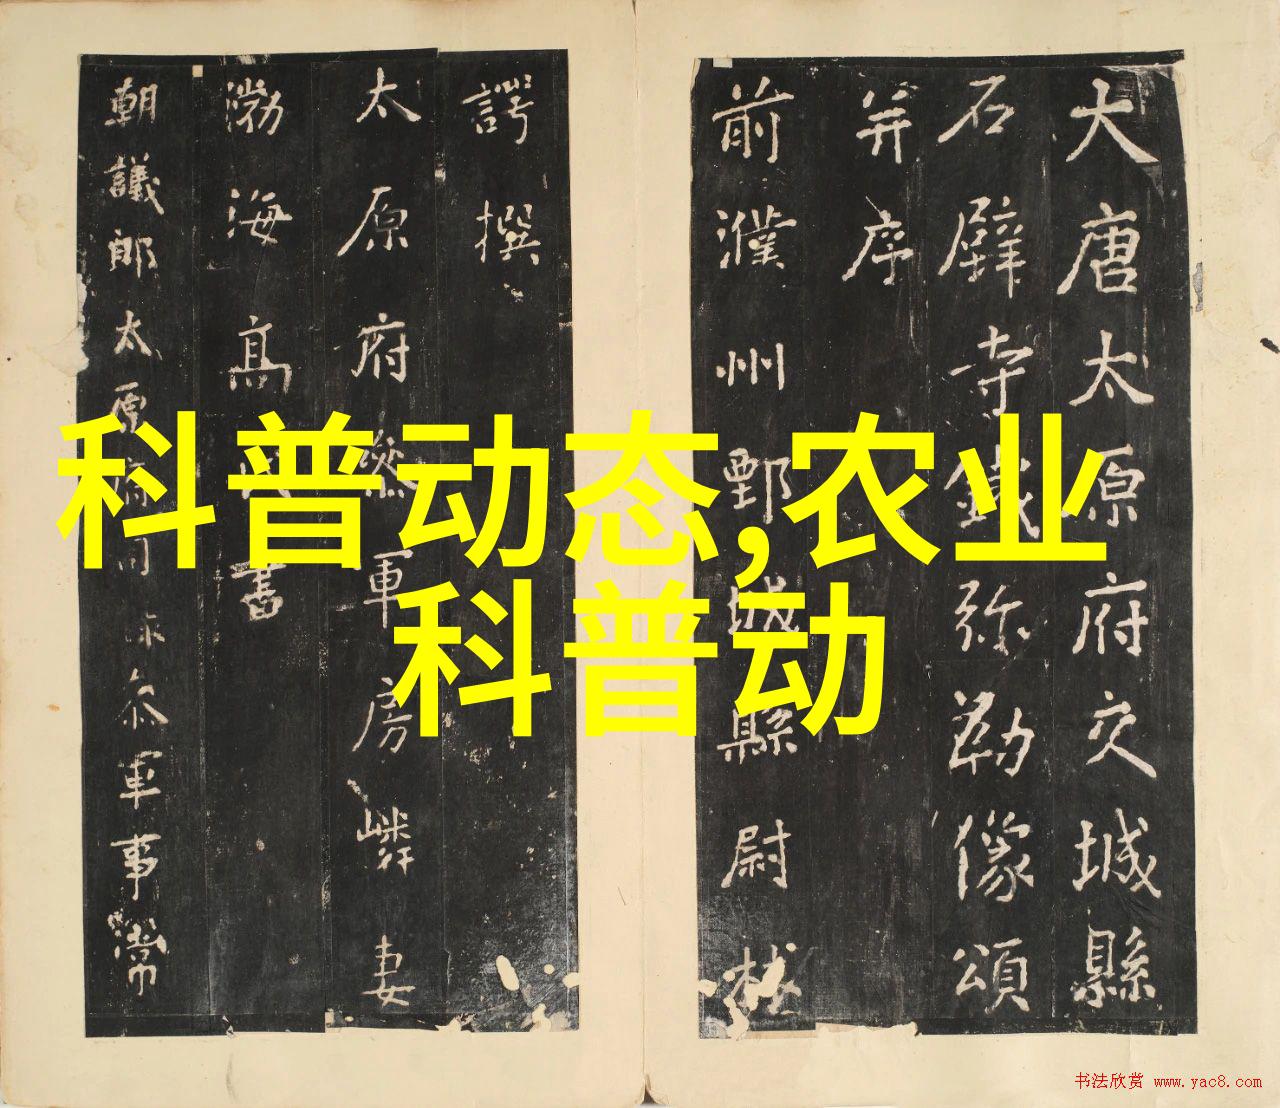 大唐太原府交城縣
石壁寺鐵弥勒像頌
并序
前濮州鄄城縣尉林
諤撰
太原府叅軍房嶙妻
渤海髙氏書
朝議郎太原府司錄叅軍事常
科普动态,农业
科普动
书法欣赏 www.yac8.com